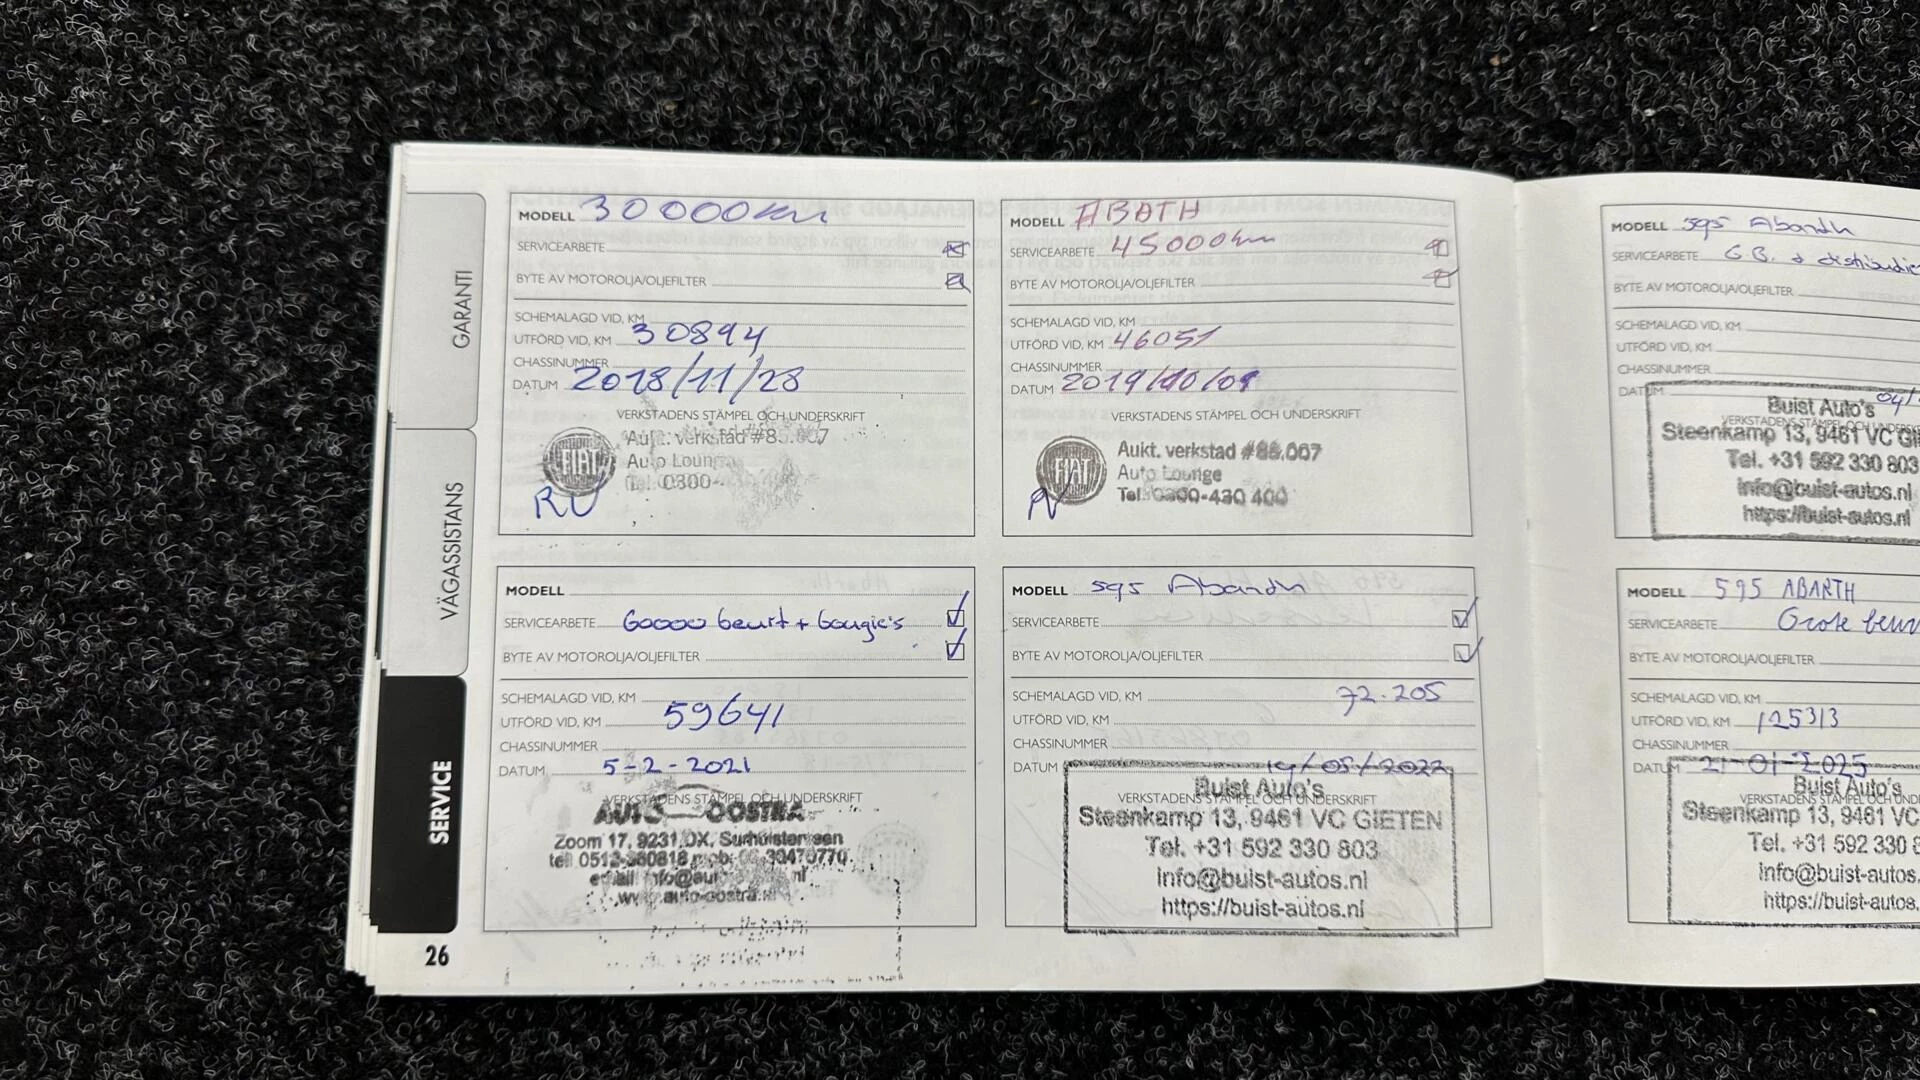 GARANTI
VÄGASSISTANS
SERVICE
26
MODELL 30000km
SERVICEARBETE
BYTE AV MOTOROLJA/OLJEFILTER
SCHEMALAGD VID, KM
UTFÖRD VID, KM 30894
CHASSINUMMER
DATUM 2018/11/28
VERKSTADENS STÄMPEL OCH UNDERSKRIFT
FIAT
Aukt. verkstad
Auto Loun
Tel. 0300-
RU
MODELL ABATH
SERVICEARBETE 45000km
BYTE AV MOTOROLJA/OLJEFILTER
SCHEMALAGD VID, KM
UTFÖRD VID, KM 46051
CHASSINUMMER
DATUM 2019/10/09
VERKSTADENS STÄMPEL OCH UNDERSKRIFT
FIAT
Aukt. verkstad #86.007
Auto Lounge
Tel. 0300-430 400
MODELL
SERVICEARBETE 60000 beurt + bougie's
BYTE AV MOTOROLJA/OLJEFILTER
SCHEMALAGD VID, KM
UTFÖRD VID, KM 59641
CHASSINUMMER
DATUM 5-2-2021
VERKSTADENS STÄMPEL OCH UNDERSKRIFT
AUTO OOSTRA
Zoom 17, 9231 DX, Surhuisterveen
www.auto-oostra.nl
MODELL 595 Abarth
SERVICEARBETE
BYTE AV MOTOROLJA/OLJEFILTER
SCHEMALAGD VID, KM 72.205
UTFÖRD VID, KM
CHASSINUMMER
DATUM 19/05/2022
VERKSTADENS STÄMPEL OCH UNDERSKRIFT
Buist Auto's
Steenkamp 13, 9461 VC GIETEN
Tel. +31 592 330 803
info@buist-autos.nl
https://buist-autos.nl
MODELL 595 Abarth
SERVICEARBETE G.B. + distributie
BYTE AV MOTOROLJA/OLJEFILTER
SCHEMALAGD VID, KM
UTFÖRD VID, KM
CHASSINUMMER
DATUM 04/
VERKSTADENS STÄMPEL OCH UNDERSK
Buist Auto's
Steenkamp 13, 9461 VC GI
Tel. +31 592 330 803
info@buist-autos.nl
https://buist-autos.nl
MODELL 595 ABARTH
SERVICEARBETE Grote beur
BYTE AV MOTOROLJA/OLJEFILTER
SCHEMALAGD VID, KM
UTFÖRD VID, KM 125313
CHASSINUMMER
DATUM 21-01-2025
VERKSTADENS STÄMPEL OCH UN
Buist Auto's
Steenkamp 13, 9461 VC
Tel. +31 592 330 8
info@buist-autos.
https://buist-autos.